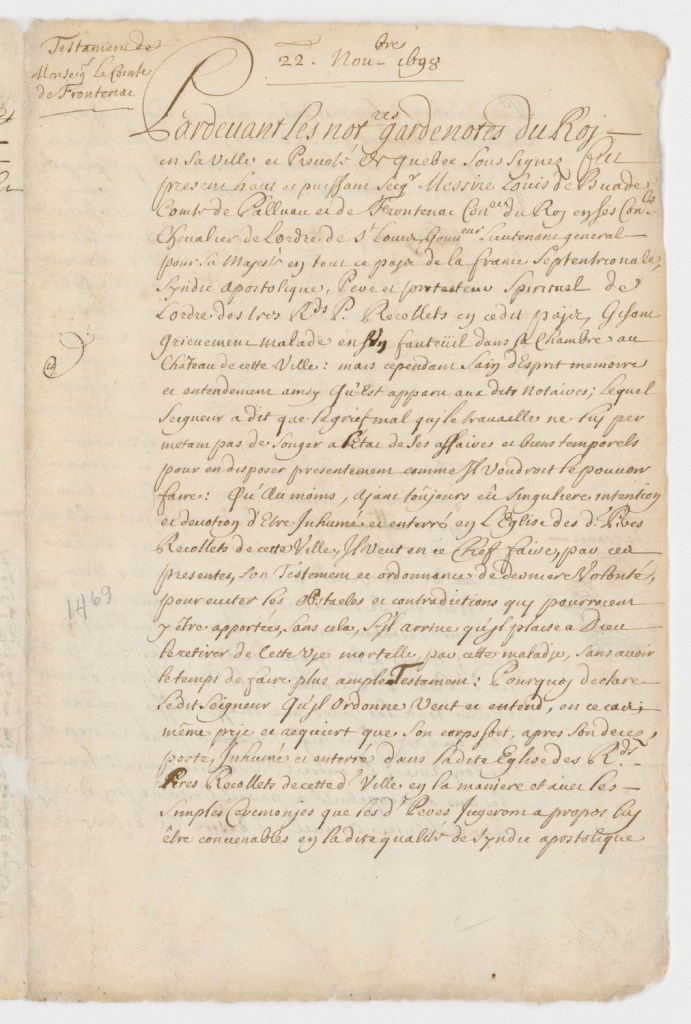 Testament de
Monseigr. Le Comte
de Frontenac
22. Novbre 1698
Pardevant Les notres gardenotes du Roj
en sa Ville et Prevosté de Quebec Sous Signez Fut
present haut et puissant Seigr. Messire Louis de Buade,
Comte de Palluau et de Frontenac Coner du Roy en ses Conls
Chevalier de Lordre de St Louis, Gouveur Lieutenant general
pour Sa Majesté en tout ce pajs de la france Septentrionale,
Syndic Apostolique, Pere et protecteur Spirituel de
Lordre des tres Rds P. Recollets en cedit pajs, Gisant
grievement malade en Son fauteüil dans Sa Chambre au
Château de cette Ville : mais cependant Sain d'Esprit memoire
et entendement ainsy Qu'Est apparu aux dits Notaires; lequel
Seigneur a dit que le grief mal quj le travaille ne luj per
metant pas de Songer a l'état de Ses affaires et biens temporels
pour en disposer presentement comme Jl Voudroit le pouvoir
faire : Qu'Au moins, ajant toûjours eû Singuliere intention
et devotion d'Etre Jnhumé et enterré en L'Eglise des ds. Peres
Recollets de cette Ville, Jl Veut en ce Chef faire, par ces
presentes, Son Testament et ordonnance de derniere Volonté,
pour eviter les Obstacles et contradictions quj pourroient
y être apportées, Sans cela, S'jl arrive qu'jl plaise a Dieu
le retirer de Cette Vje mortelle, par cette maladje, Sans avoir
le temps de faire plus ample Testament : Pourquoj declare
ledit Seigneur Qu'jl Ordonne Veut et entend, en ce cas,
même prje et requiert que Son corps Soit, apres Son deces,
porté, Jnhumé et enterré dans ladite Eglise des Rds
Peres Recollets de cette de Ville en la maniere et avec les
Simples Ceremonjes que les ds Peres Jugeront a propos luj
être convenables en ladite qualité de Syndic apostolique
1469